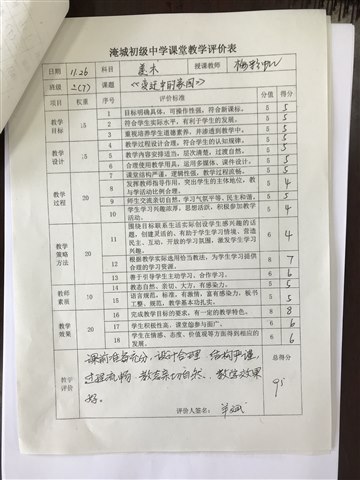 淹城初级中学课堂教学评价表
日期 11.26 科目 美术 授课教师
班级 课题 《变迁中的家园》
项目 权重 序号 评价标准 分值 得分
教学目标 15 1 目标明确具体,可操作性强,符合新课标。 5 5
2 符合学生实际水平,有利于学生的发展。 5 5
3 重视培养学生道德素养,并渗透到教学中。 5 5
教学设计 15 4 教学过程设计合理,符合学生的认知规律。 5 5
5 教学内容安排适当,层次清楚,过渡自然。 5 5
6 合理使用教学用具,运用多媒体、课件设计。 5 5
教学过程 20 7 课堂结构严谨,逻辑性强,教学过程流畅。 5 5
8 发挥教师指导作用,突出学生的主体地位,教与学活动比例合理。 5 4
9 师生交流亲切自然,学习气氛平等、民主和谐。 5 5
10 学生学习兴趣浓厚,思想活跃,积极参加教学活动。 5 4
教学策略方法 20 11 围绕目标联系生活实际创设学生感兴趣的话题,创建灵活的、有助于学生学习情境,营造民主、互动、开放的学习氛围,激发学生学习兴趣。 6 4
12 根据教学实际选用恰当教法,为学生学习提供合理的学习资源。 8 7
13 善于引导学生主动学习、合作学习。 6 6
教师素质 10 14 教态自然,亲切、大方,有感染力。 5 5
15 语言规范,标准,有激情,富有感染力,板书工整、规范,教学基本功扎实。 5 5
教学效果 20 16 完成教学目标的要求,有一定的教学特色。 8 8
17 学生积极性高,课堂能参与面广。 6 6
18 学生在情感、态度、价值观等方面得到相应的发展。 6 6
教学评价 课前准备充分,设计合理 结构严谨, 总得分
过程流畅 教态亲切自然、教学效果 95
好。
评价人签名: